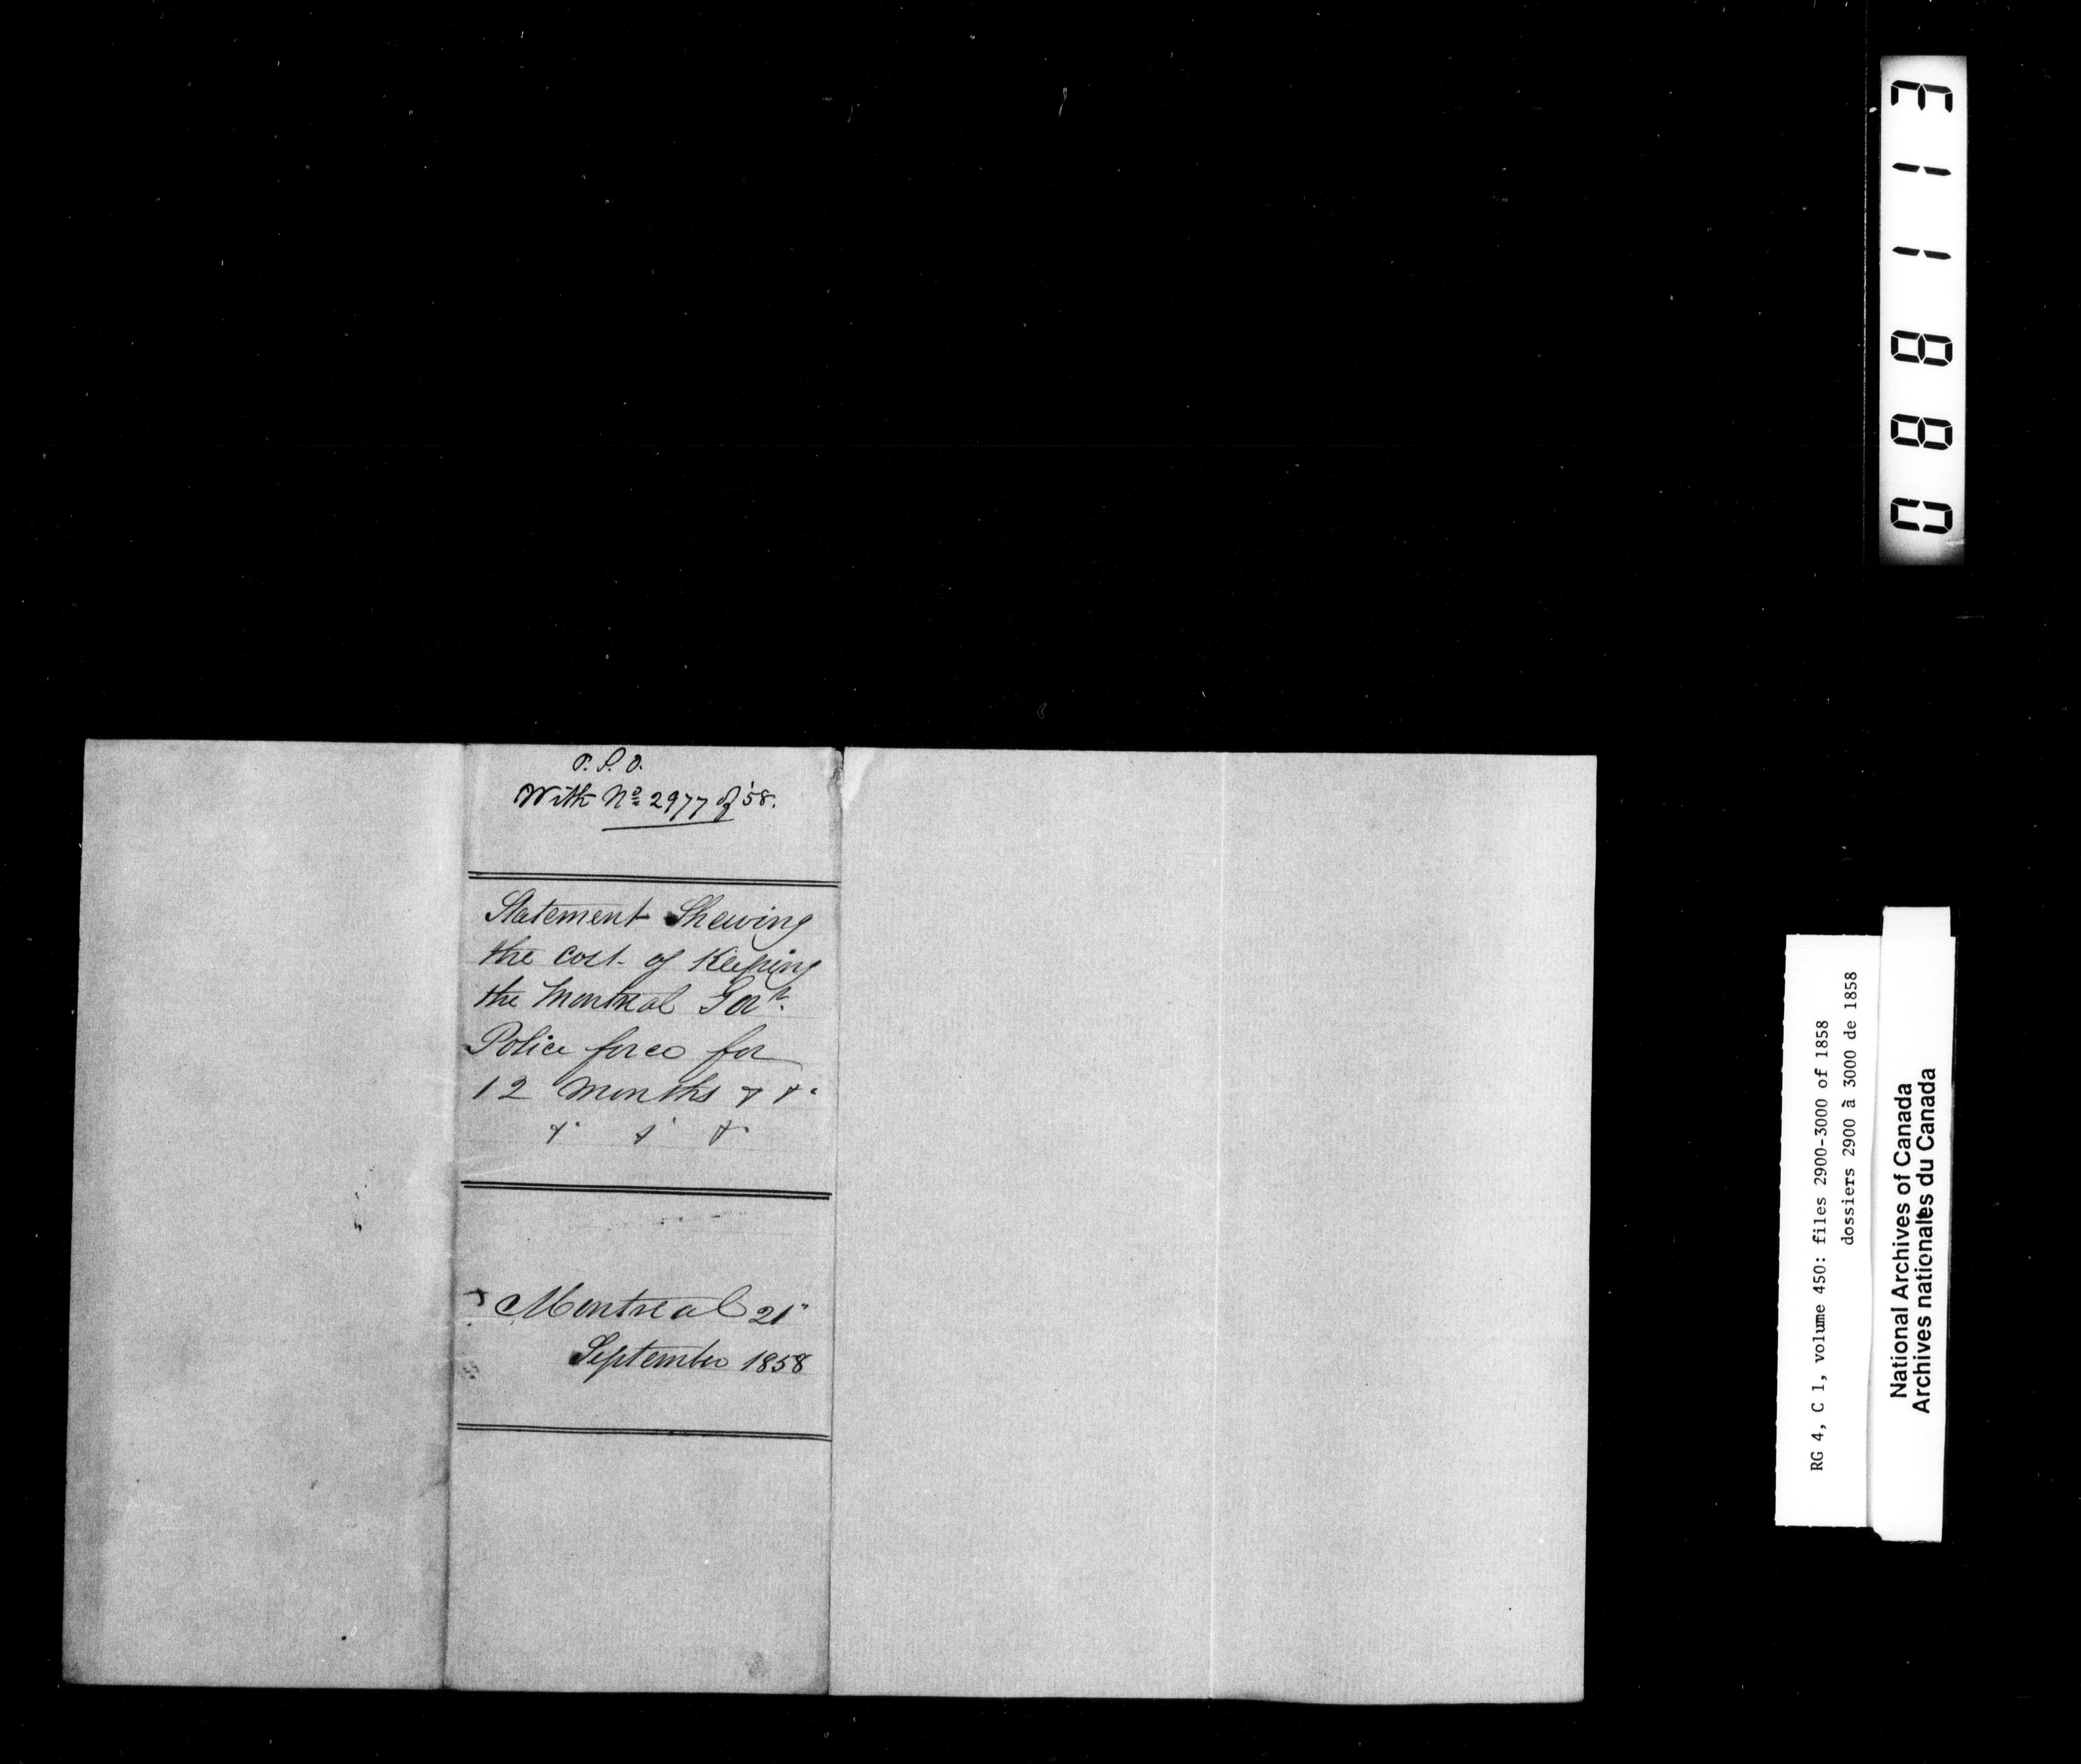 P. S. O.
With No. 2977 of '58.
Statement Shewing
the cost of Keeping
the Montreal Govt.
Police force for
12 Months & &.
&. &. &.
Montreal 21"
September 1858
088113
RG 4, C 1, volume 450: files 2900-3000 of 1858
dossiers 2900 à 3000 de 1858
National Archives of Canada
Archives nationales du Canada